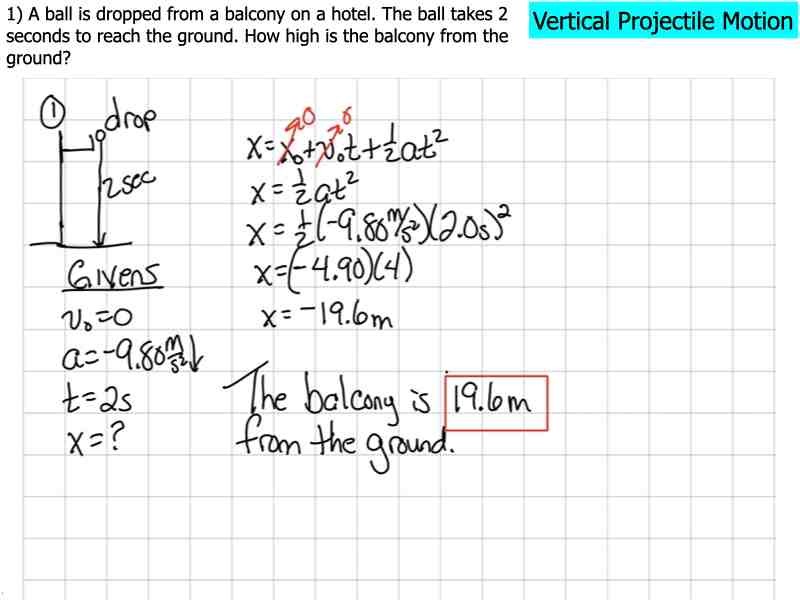 1) A ball is dropped from a balcony on a hotel. The ball takes 2
seconds to reach the ground. How high is the balcony from the
ground?
Vertical Projectile Motion
① drop
2 sec
Givens
v₀=0
a=-9.80 m/s² ↓
t=2s
x=?
x=x₀↗0+v₀↗0t+½at²
x=½at²
x=½(-9.80 m/s²)(2.0s)²
x=(-4.90)(4)
x=-19.6m
The balcony is 19.6m
from the ground.